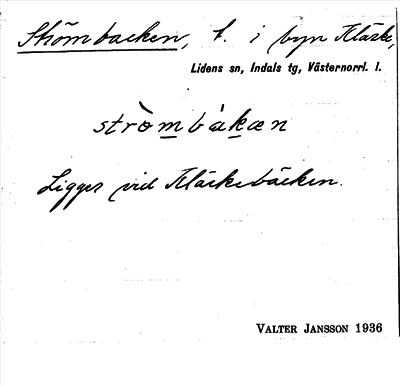 Strömbacken, t. i byn Kläcke,
Lidens sn, Indals tg, Västernorrl. l.
stròmbàkæn
Ligger vid Kläckebäcken.
VALTER JANSSON 1936